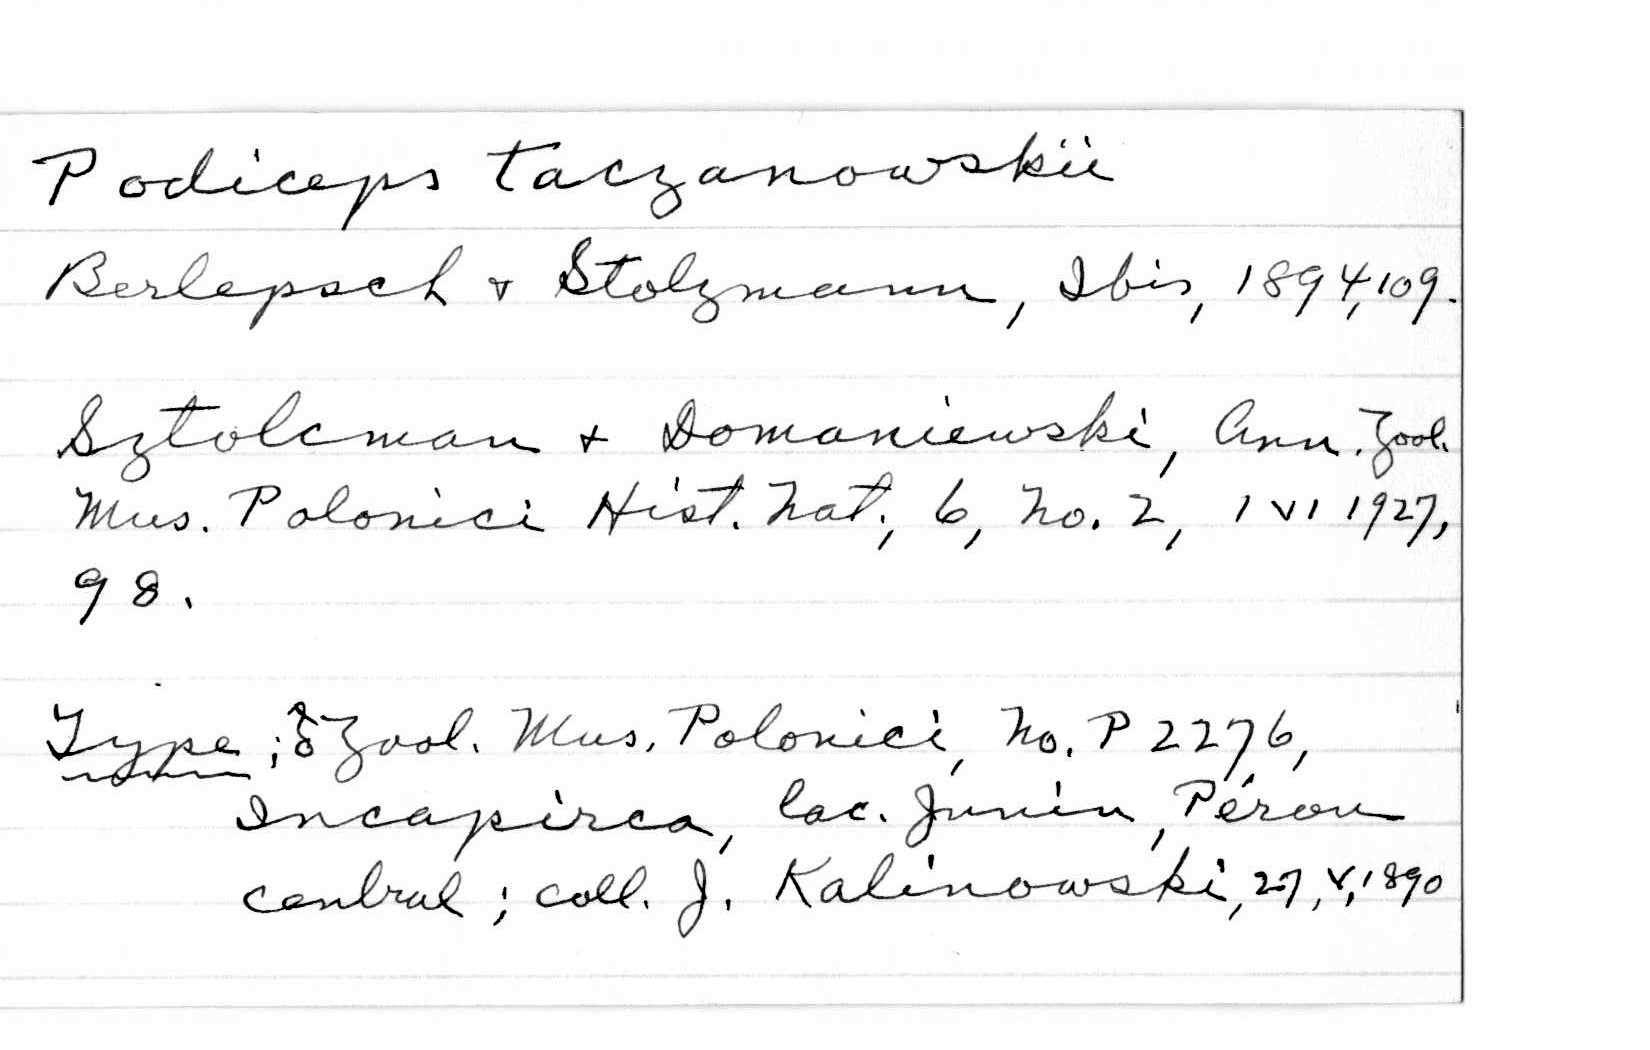 Podiceps taczanowskii
Berlepsch & Stolzmann, Ibis, 1894, 109.
Sztolcman & Domaniewski, Ann. Zool.
Mus. Polonici Hist. Nat., 6, No. 2, 1 VI 1927,
98.
Type; ♂ Zool. Mus. Polonici, No. P 2276,
Incapirca, lac. Junin, Pérou
central; coll. J. Kalinowski, 27, V, 1890